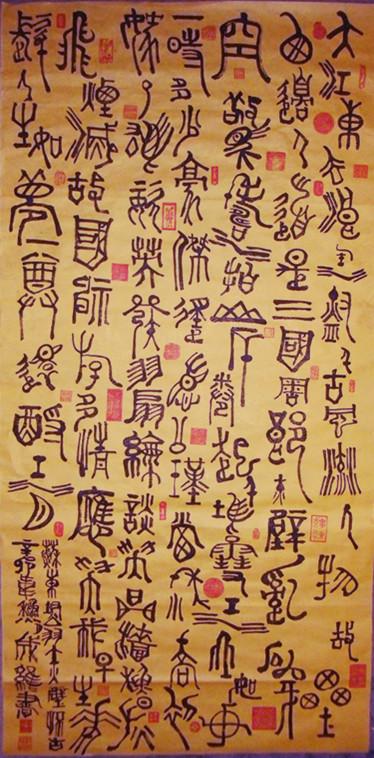 大江東去浪淘盡千古風流人物故壘
西邊人道是三國周郎赤壁亂石穿
空驚濤拍岸捲起千堆雪江山如畫
一時多少豪傑遙想公瑾當年小喬初
嫁了雄姿英發羽扇綸巾談笑間檣櫓灰
飛煙滅故國神遊多情應笑我早生華
髮人生如夢一尊還酹江月
蘇東坡赤壁懷古
書